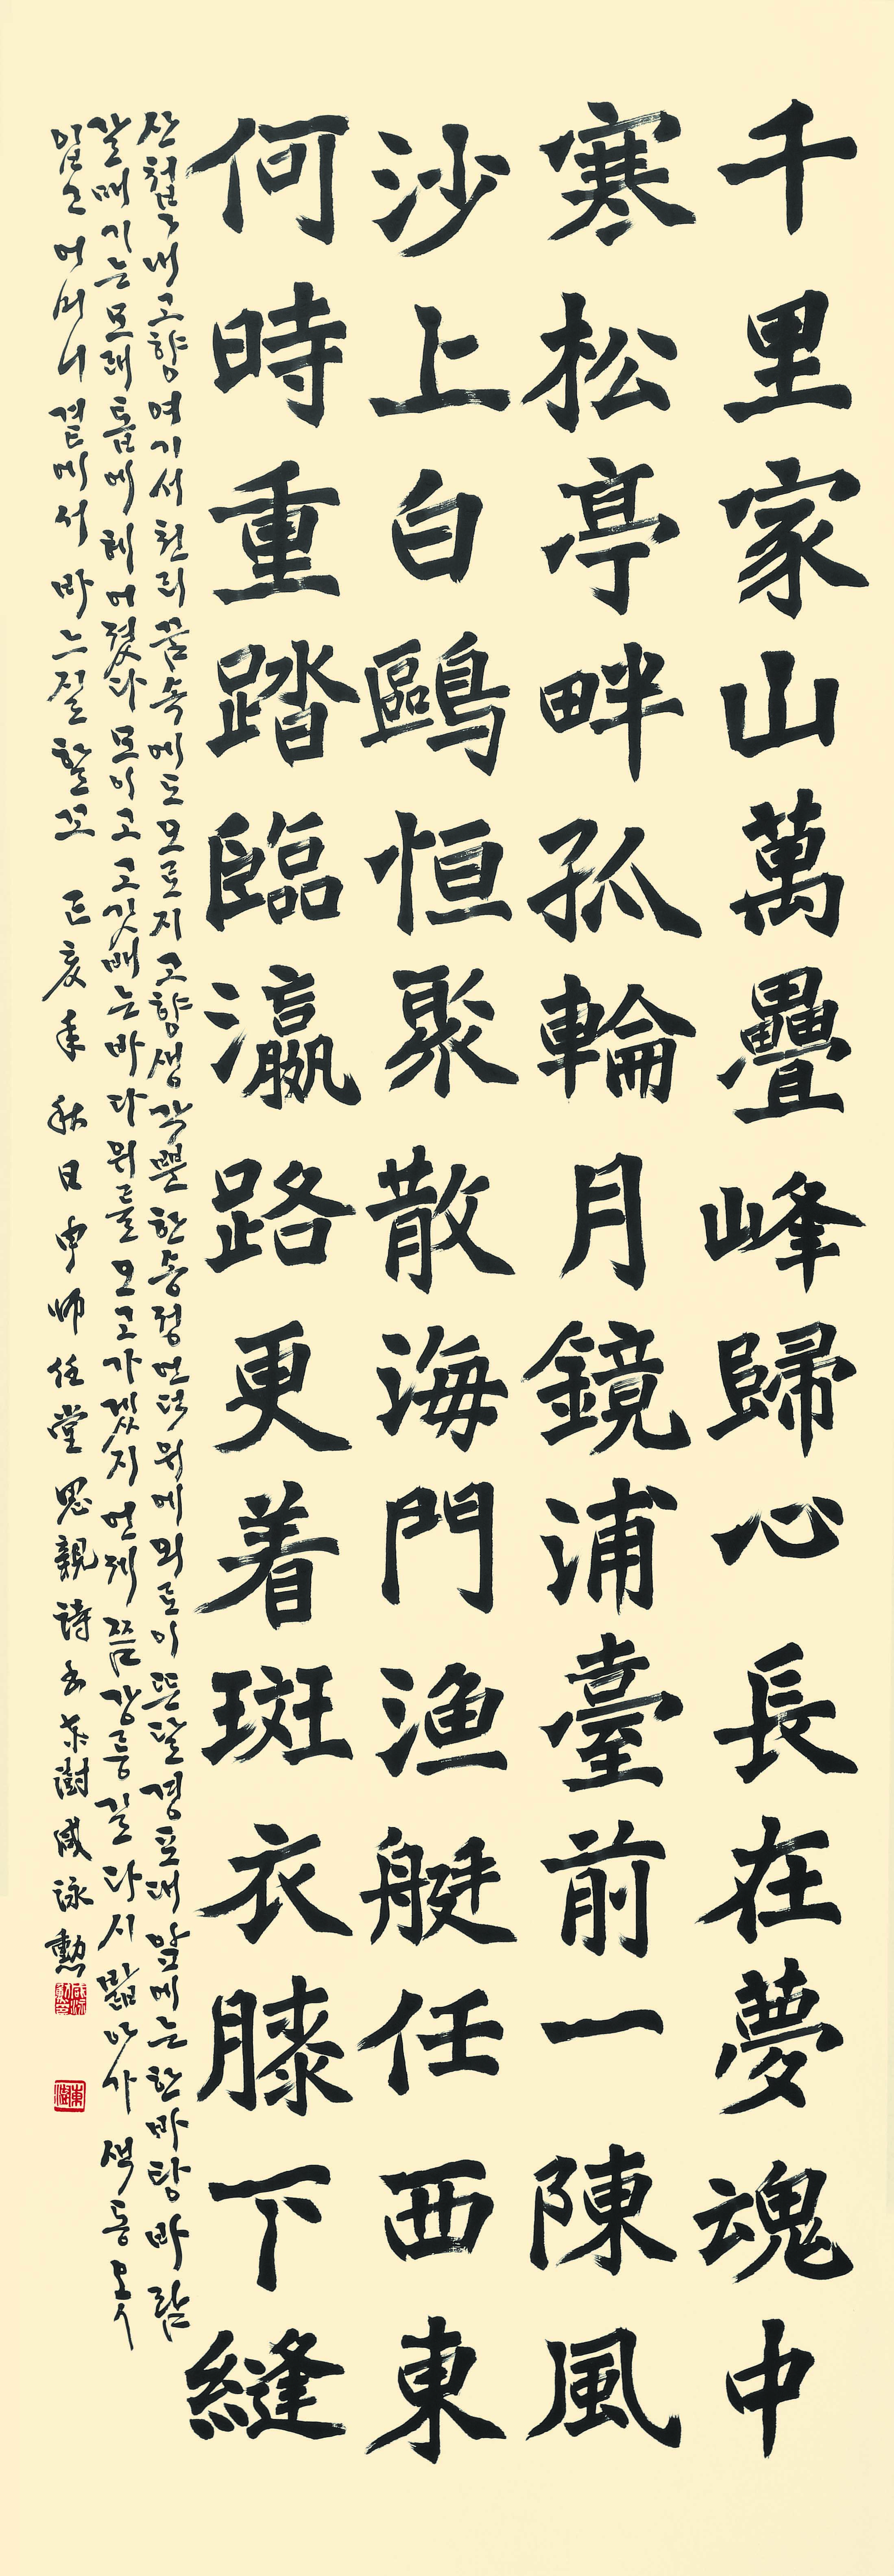 千里家山萬疊峰歸心長在夢魂中
寒松亭畔孤輪月鏡浦臺前一陳風
沙上白鷗恒聚散海門漁艇任西東
何時重踏臨瀛路更着斑衣膝下縫
산첩〃내고향여기서천리꿈속에도오로지고향생각뿐한송정언덕위에외로이뜬달경포대앞에는한바탕바람
갈매기는모래톱에헤어졌다모이고고깃배는바다위를오고가겠지언제쯤강릉길다시밟아가색동옷
입고어머니곁에서바느질할꼬 丁亥年秋日申師任堂思親詩 東澍咸泳勳